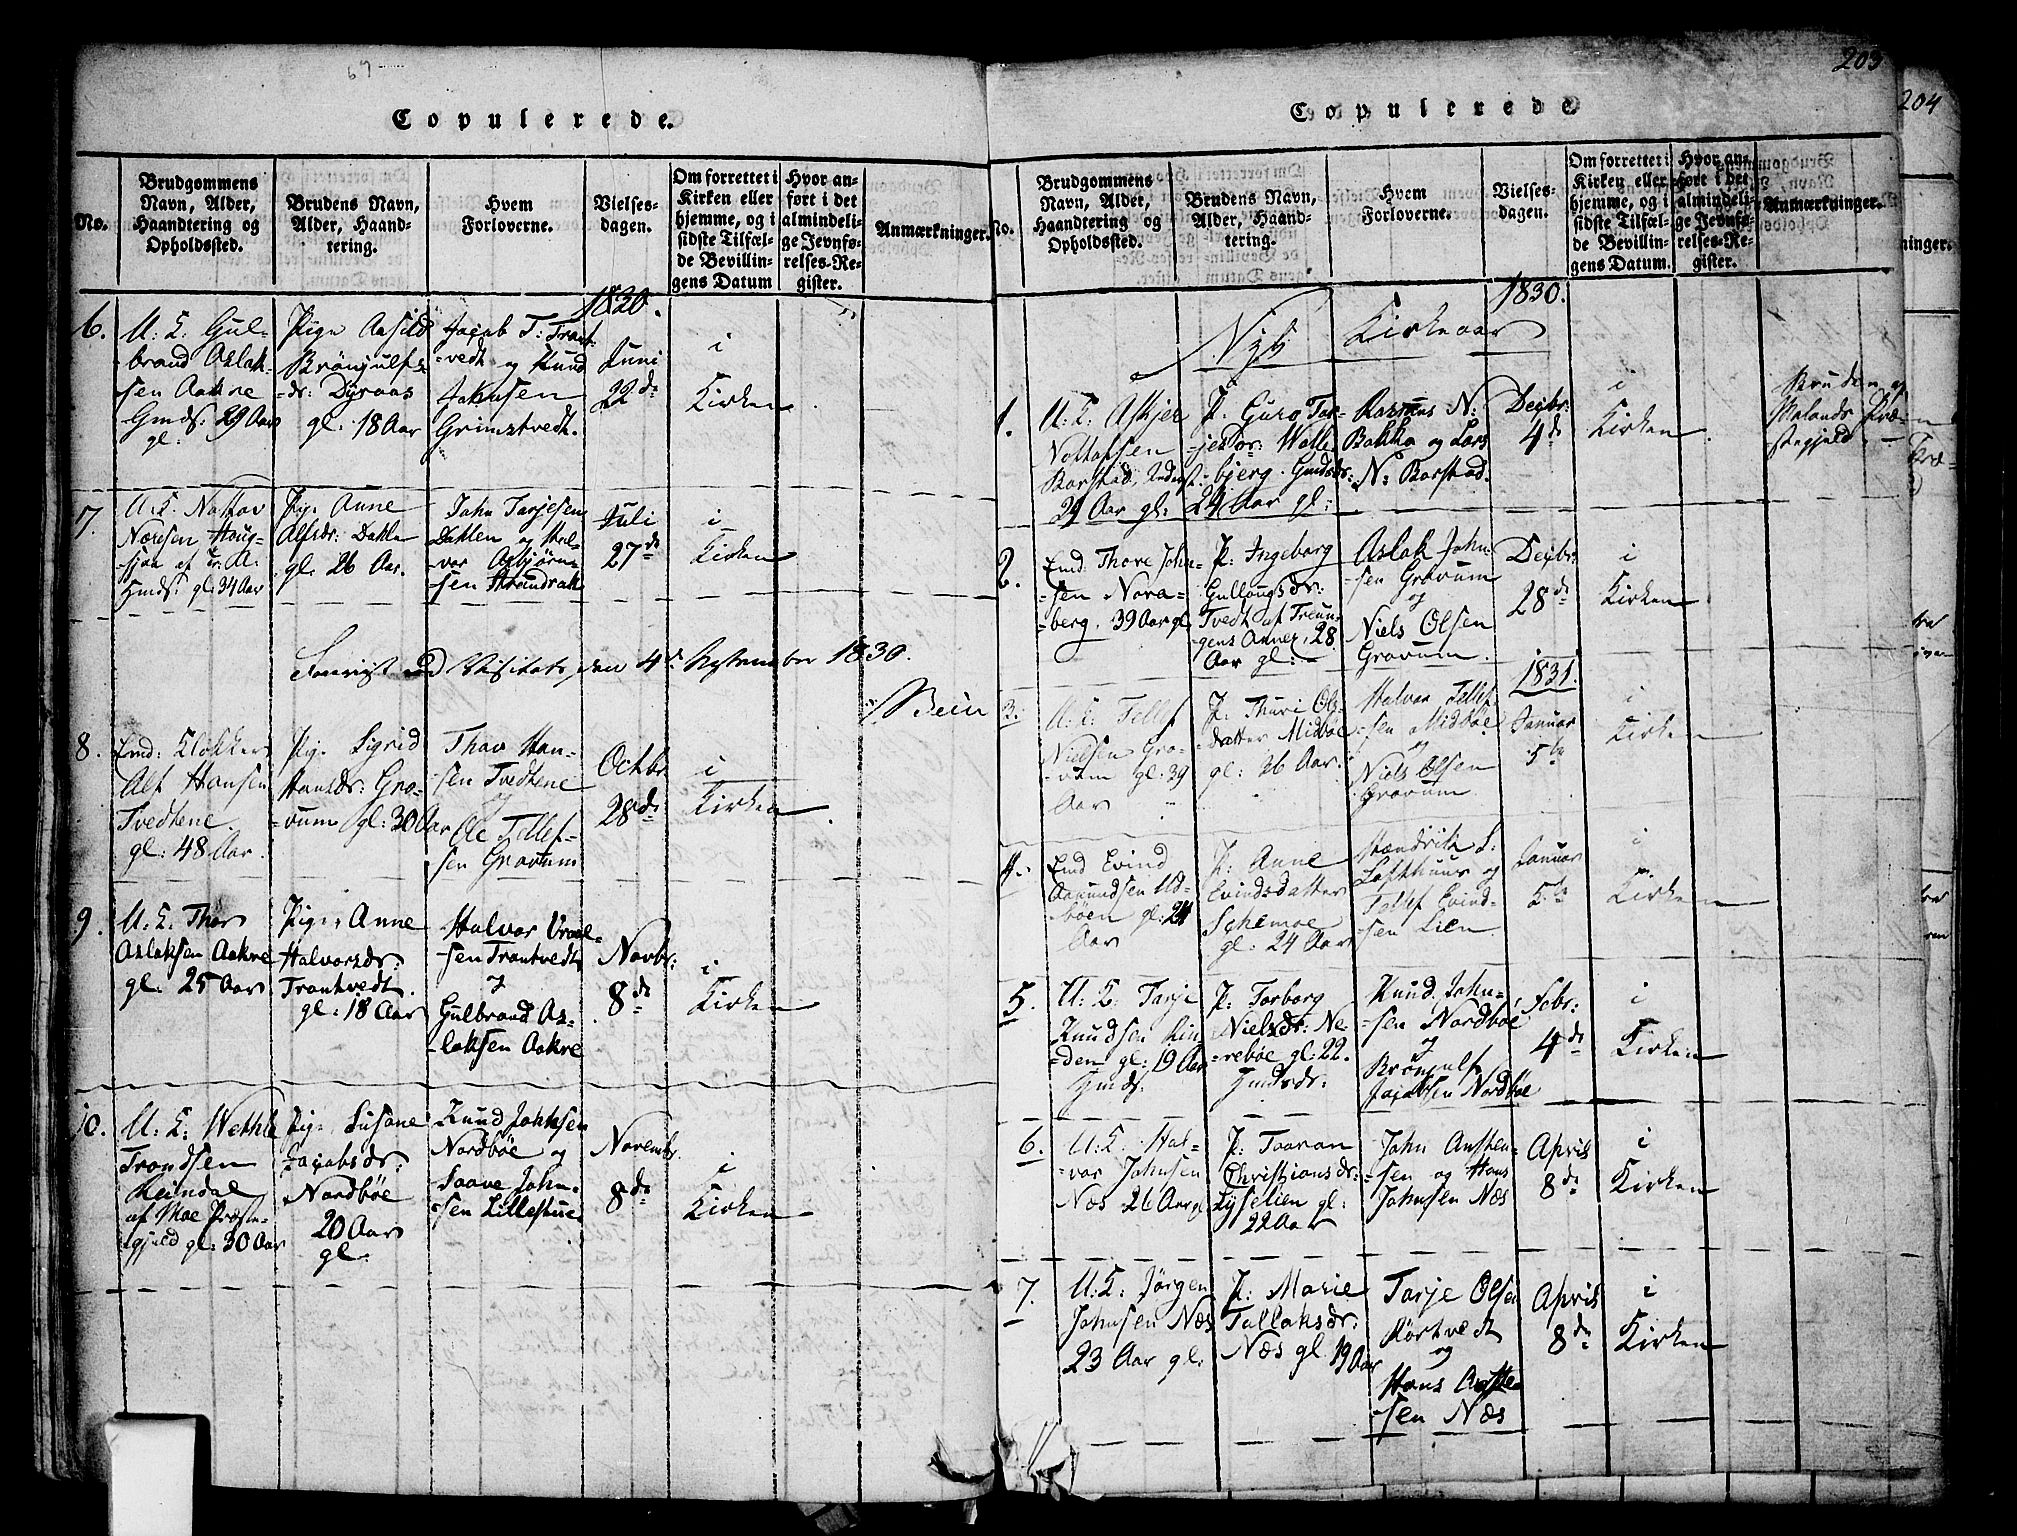 69
Copulerede.
No.
Brudgommens
Navn, Alder,
Haandtering og
Opholdssted.
Brudens Navn,
Alder, Haand-
tering.
Hvem
Forloverne.
Vielses-
dagen.
Om forrettet i
Kirken eller
hjemme, og i
sidste Tilfæl-
de Bevillin-
gens Datum
Hvor an-
ført i det
almindeli-
ge Jevnfø-
relses-Re-
gister.
Anmærkninger.
1830.
6.
U: K. Gul-
-brand Aslak-
sen Aakre
Gmds. 29 Aar
gl:
Pige Aasild
Brönjulfs
-dr: Dyraas
gl: 18 Aar
Jacob T: Trant-
-vedt og Knud
Jakusen
Grimstvedt.
Juni
22de
i
Kirken
7.
U. K. Nottov
Næresen Houg-
Gmds. gl: 34 Aar
Pig. Anne
Alfsdr: Dahle
gl. 26 Aar.
John Tarjesen
Dahlen og Hal-
vor Asbjörn-
sen Strundrak
Juli
27de
i
Kirken
Foreviist ved Visitats den 4de September 1830.
Bein
8.
Emd: Klokker
Alf Hansen
Tvedtene
gl: 48 Aar.
Pig. Sigrid
Hansdr: Gro-
-vum gl: 30 Aar
Thov Han-
sen Tvedtene
og
Ole Tellef-
sen Grovum
Octbr
28de
i
Kirken
9.
U. K. Thor
Aslaksen Aakre
gl: 25 Aar
Pige Anne
Halvorsdr:
Trantvedt.
gl: 18 Aar
Halvor Vrael-
-sen Trantvedt
og
Gulbrand As-
-laksen Aakre
Novbr:
8de
i
Kirken
10.
U: K: Wethle
Trondsen
Reindal
af Moe Præste-
gjeld gl: 30 Aar
Pig. Susane
Jacobsdr:
Nordbøe
20 Aar
gl:
Knud Jakksen
Nordbøe og
Saave John-
sen Lillestue
Novembr.
8de
i
Kirken
203
Copulerede
No.
Brudgommens
Navn, Alder,
Haandtering og
Opholdssted.
Brudens Navn,
Alder, Haand-
tering.
Hvem
Forloverne.
Vielses-
dagen.
Om forrettet i
Kirken eller
hjemme, og i
sidste Tilfæl-
de Bevillin-
gens Datum.
Hvor an-
ført i det
almindeli-
ge Jevnfø-
relses-Re-
gister.
Anmærkninger.
1830.
Nyt Kirkeaar
1.
U: K. Askjer
Nottolfsen
Borstad,
29 Aar gl:
P. Guro Tar-
jesdr: Watte-
bjerg. Gmdsdr:
24 Aar gl:
Rasmus N:
Bakka og Lars
N: Borstad.
Decbr:
4de
i
Kirken
Bruden af
Molands Præ-
stegjeld.
2.
Emd. Thore John-
-sen Nora-
-berg. 39 Aar gl.
P. Ingeborg
Gullougsdr:
Tvedt af Treun-
gens Annex, 28
Aar gl:
Aslak John-
-sen Grovum
og
Niels Olsen
Grovum.
Decbr:
28de
i
Kirken
1831.
3.
U: K: Tellef
Nielsen Gro-
-vum gl: 39
Aar
P. Thuri Ols-
-datter Midbøe
gl: 26 Aar.
Halvor Tellef-
-sen Midbøe
og
Niels Olsen
Grovum.
Januar
5te
i
Kirken
4.
Emd Evind
Aamundsen Ud-
-boen gl: 24
Aar
P. Anne
Evindsdatter
Schemoe
gl: 24 Aar
Hændrik S:
Lofthuus og
Tellef Evind-
-sen Lien.
Januar
5te
i
Kirken
5.
U: K. Tarje
Knudsen Lin-
-den gl: 19 Aar
Gmds.
P: Torborg
Nielsdr: Ne-
-rebøe gl: 22.
Gmdsdr:
Knud. John-
-sen Nordbøe
og
Brönjulf
Jacobsen Nordbøe
Febr:
4de
i
Kirken
6.
U: K. Hal-
-vor Johnsen
Næs 26 Aar gl.
P: Taaran
Christiansdr:
Lyselien gl:
22 Aar
John Ansten-
-sen og Hans
Johnsen Næs
April
8de
i
Kirken
7.
U: K: Jörgen
Johnsen Næs
23 Aar gl:
P: Marie
Tallaksdr:
Næs gl 19 Aar
Tarje Olsen
Rörtvedt
og
Hans Ansten-
-sen Næs
April
8de
i
Kirken
204
ninger.